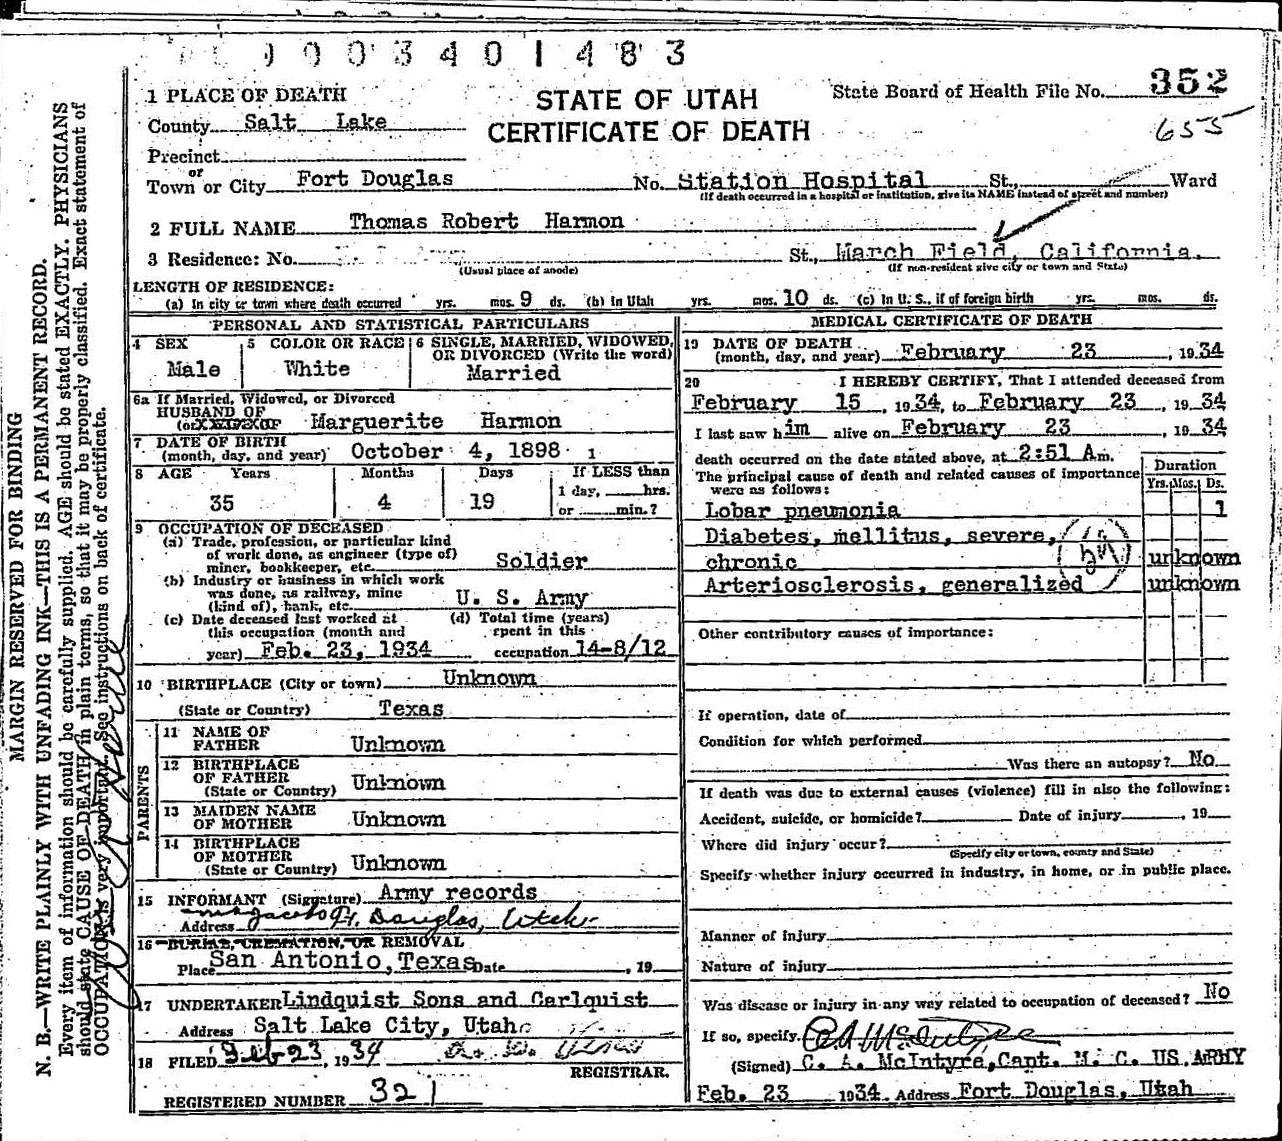 0003401483
1 PLACE OF DEATH
STATE OF UTAH
CERTIFICATE OF DEATH
State Board of Health File No. 352
655
County Salt Lake
Precinct
or
Town or City Fort Douglas No. Station Hospital St., Ward
(If death occurred in a hospital or institution, give its NAME instead of street and number)
2 FULL NAME Thomas Robert Harmon
3 Residence: No. St., March Field, California.
(Usual place of abode) (If non-resident give city or town and State)
LENGTH OF RESIDENCE:
(a) In city or town where death occurred yrs. mos. 9 ds. (b) In Utah yrs. mos. 10 ds. (c) In U. S., if of foreign birth yrs. mos. ds.
PERSONAL AND STATISTICAL PARTICULARS
4 SEX
Male
5 COLOR OR RACE
White
6 SINGLE, MARRIED, WIDOWED,
OR DIVORCED (Write the word)
Married
6a If Married, Widowed, or Divorced
HUSBAND OF
(or WIFE OF Marguerite Harmon
7 DATE OF BIRTH
(month, day, and year) October 4, 1898
8 AGE Years Months Days If LESS than
35 4 19 1 day, hrs.
or min.?
9 OCCUPATION OF DECEASED
(a) Trade, profession, or particular kind
of work done, as engineer (type of)
miner, bookkeeper, etc. Soldier
(b) Industry or business in which work
was done, as railway, mine
(kind of), bank, etc. U. S. Army
(c) Date deceased last worked at
this occupation (month and
year) Feb. 23, 1934
(d) Total time (years)
spent in this
occupation 14-8/12
10 BIRTHPLACE (City or town) Unknown
(State or Country) Texas
PARENTS
11 NAME OF
FATHER Unknown
12 BIRTHPLACE
OF FATHER
(State or Country) Unknown
13 MAIDEN NAME
OF MOTHER Unknown
14 BIRTHPLACE
OF MOTHER
(State or Country) Unknown
15 INFORMANT (Signature) Army records
Address Ft. Douglas, Utah
16 BURIAL, CREMATION, OR REMOVAL
Place San Antonio, Texas Date , 19
17 UNDERTAKER Lindquist Sons and Carlquist
Address Salt Lake City, Utah
18 FILED Feb 23, 1934
REGISTRAR.
REGISTERED NUMBER 321
MEDICAL CERTIFICATE OF DEATH
19 DATE OF DEATH
(month, day, and year) February 23, 1934
20 I HEREBY CERTIFY, That I attended deceased from
February 15, 1934, to February 23, 1934
I last saw him alive on February 23, 1934
death occurred on the date stated above, at 2:51 Am.
The principal cause of death and related causes of importance
were as follows:
Duration
Yrs. Mos. Ds.
Lobar pneumonia 1
Diabetes, mellitus, severe,
chronic unknown
Arteriosclerosis, generalized unknown
59
Other contributory causes of importance:
If operation, date of
Condition for which performed
Was there an autopsy? No
If death was due to external causes (violence) fill in also the following:
Accident, suicide, or homicide? Date of injury , 19
Where did injury occur?
(Specify city or town, county and State)
Specify whether injury occurred in industry, in home, or in public place.
Manner of injury
Nature of injury
Was disease or injury in any way related to occupation of deceased? No
If so, specify. C A McIntyre
(Signed) C. A. McIntyre, Capt. M. C. US ARMY
Feb. 23 1934 Address Fort Douglas, Utah
MARGIN RESERVED FOR BINDING
N. B.—WRITE PLAINLY WITH UNFADING INK—THIS IS A PERMANENT RECORD.
Every item of information should be carefully supplied. AGE should be stated EXACTLY. PHYSICIANS
should state CAUSE OF DEATH in plain terms, so that it may be properly classified. Exact statement of
OCCUPATION is very important. See instructions on back of certificate.